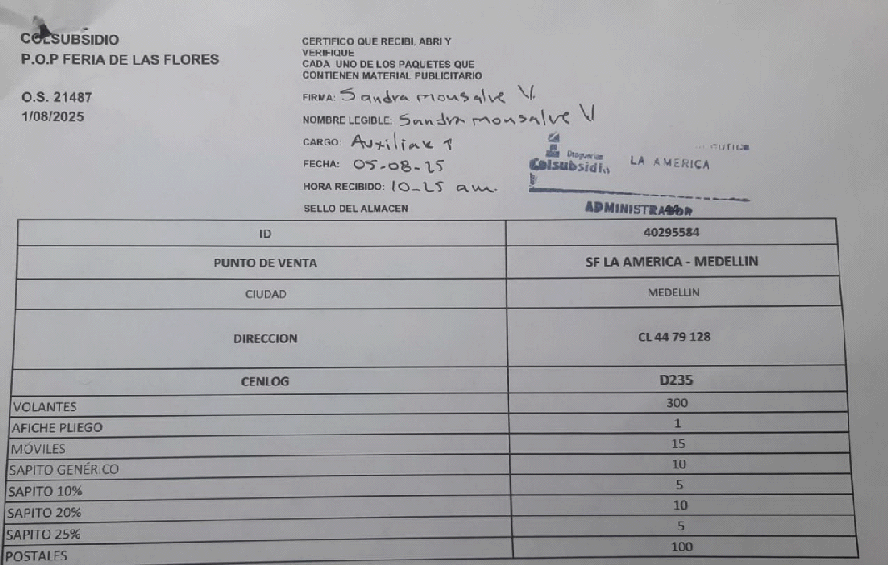 COLSUBSIDIO
P.O.P FERIA DE LAS FLORES
O.S. 21487
1/08/2025
CERTIFICO QUE RECIBI, ABRI Y
VERIFIQUE
CADA UNO DE LOS PAQUETES QUE
CONTIENEN MATERIAL PUBLICITARIO
FIRMA: Sandra Monsalve V
NOMBRE LEGIBLE: Sandra Monsalve V
CARGO: Auxiliar 1
FECHA: 05-08-25
HORA RECIBIDO: 10-25 am.
SELLO DEL ALMACEN
Droguerías
Colsubsidio LA AMERICA
ADMINISTRADOR
ID 40295584
PUNTO DE VENTA SF LA AMERICA - MEDELLIN
CIUDAD MEDELLIN
DIRECCION CL 44 79 128
CENLOG D235
VOLANTES 300
AFICHE PLIEGO 1
MÓVILES 15
SAPITO GENÉRICO 10
SAPITO 10% 5
SAPITO 20% 10
SAPITO 25% 5
POSTALES 100